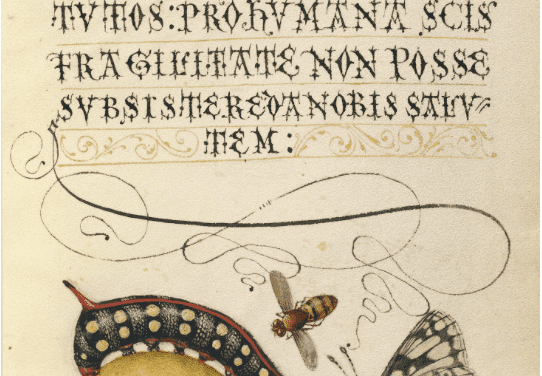 TVTOS: PRO HVMANA SCIS
FRAGILITATE NON POSSE
SVBSISTERE DA NOBIS SALV=
TEM: